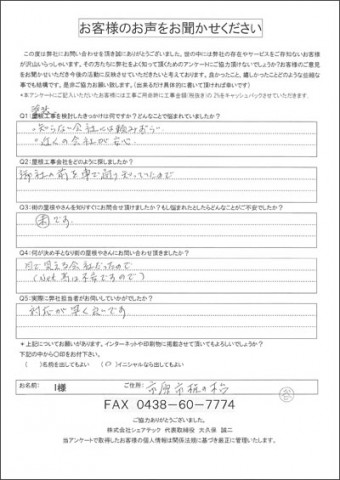 お客様のお声をお聞かせください
この度は弊社にお問い合わせを頂き誠にありがとうございました。世の中には弊社の存在やサービスをご存知ないお客様
が沢山いらっしゃいます。その方たちに弊社をよく知って頂くためのアンケートにご協力頂けないでしょうか?お客様のご意見
をお聞かせいただき今後の活動に反映させていただきたいと考えております。良かったこと、嬉しかったことどのような些細な
事でも結構です。是非ご協力お願い致します。(出来るだけ具体的に書いて頂ければ幸いです)
*本アンケートにご記入いただいたお客様には工事ご用命時に工事金額(税抜き)の2%をキャッシュバックさせていただきます。
塗装
Q1:屋根工事を検討したきっかけは何ですか?どんなことで悩まれていましたか?
・知らない会社には頼みずらい
・近くの会社が安心
Q2:屋根工事会社をどのように探しましたか?
御社の前を車で
Q3:街の屋根やさんを知りすぐにお問合せ頂けましたか?もし悩まれたとしたらどんなことがご不安でしたか?
です。
Q4:何が決め手となり街の屋根やさんにお問い合わせ頂きましたか?
目で見える会社だったので
(Net 等は不安でるので)
Q5:実際に弊社担当者がお伺いしていかがでしたか?
対応が早く良いです
*上記についてお願いがあります。インターネットや印刷物に掲載させて頂いてもよろしいでしょうか?
下記の中から○印をお付下さい。
( )名前を出してもよい (○)イニシャルなら出してもよい
お名前: I様 ご住所: 市原市
FAX 0438-60-7774
ご協力ありがとうございました。
株式会社シェアテック 代表取締役 大久保 誠二
当アンケートで取得したお客様の個人情報は関係法規に基づき厳正に管理いたします。